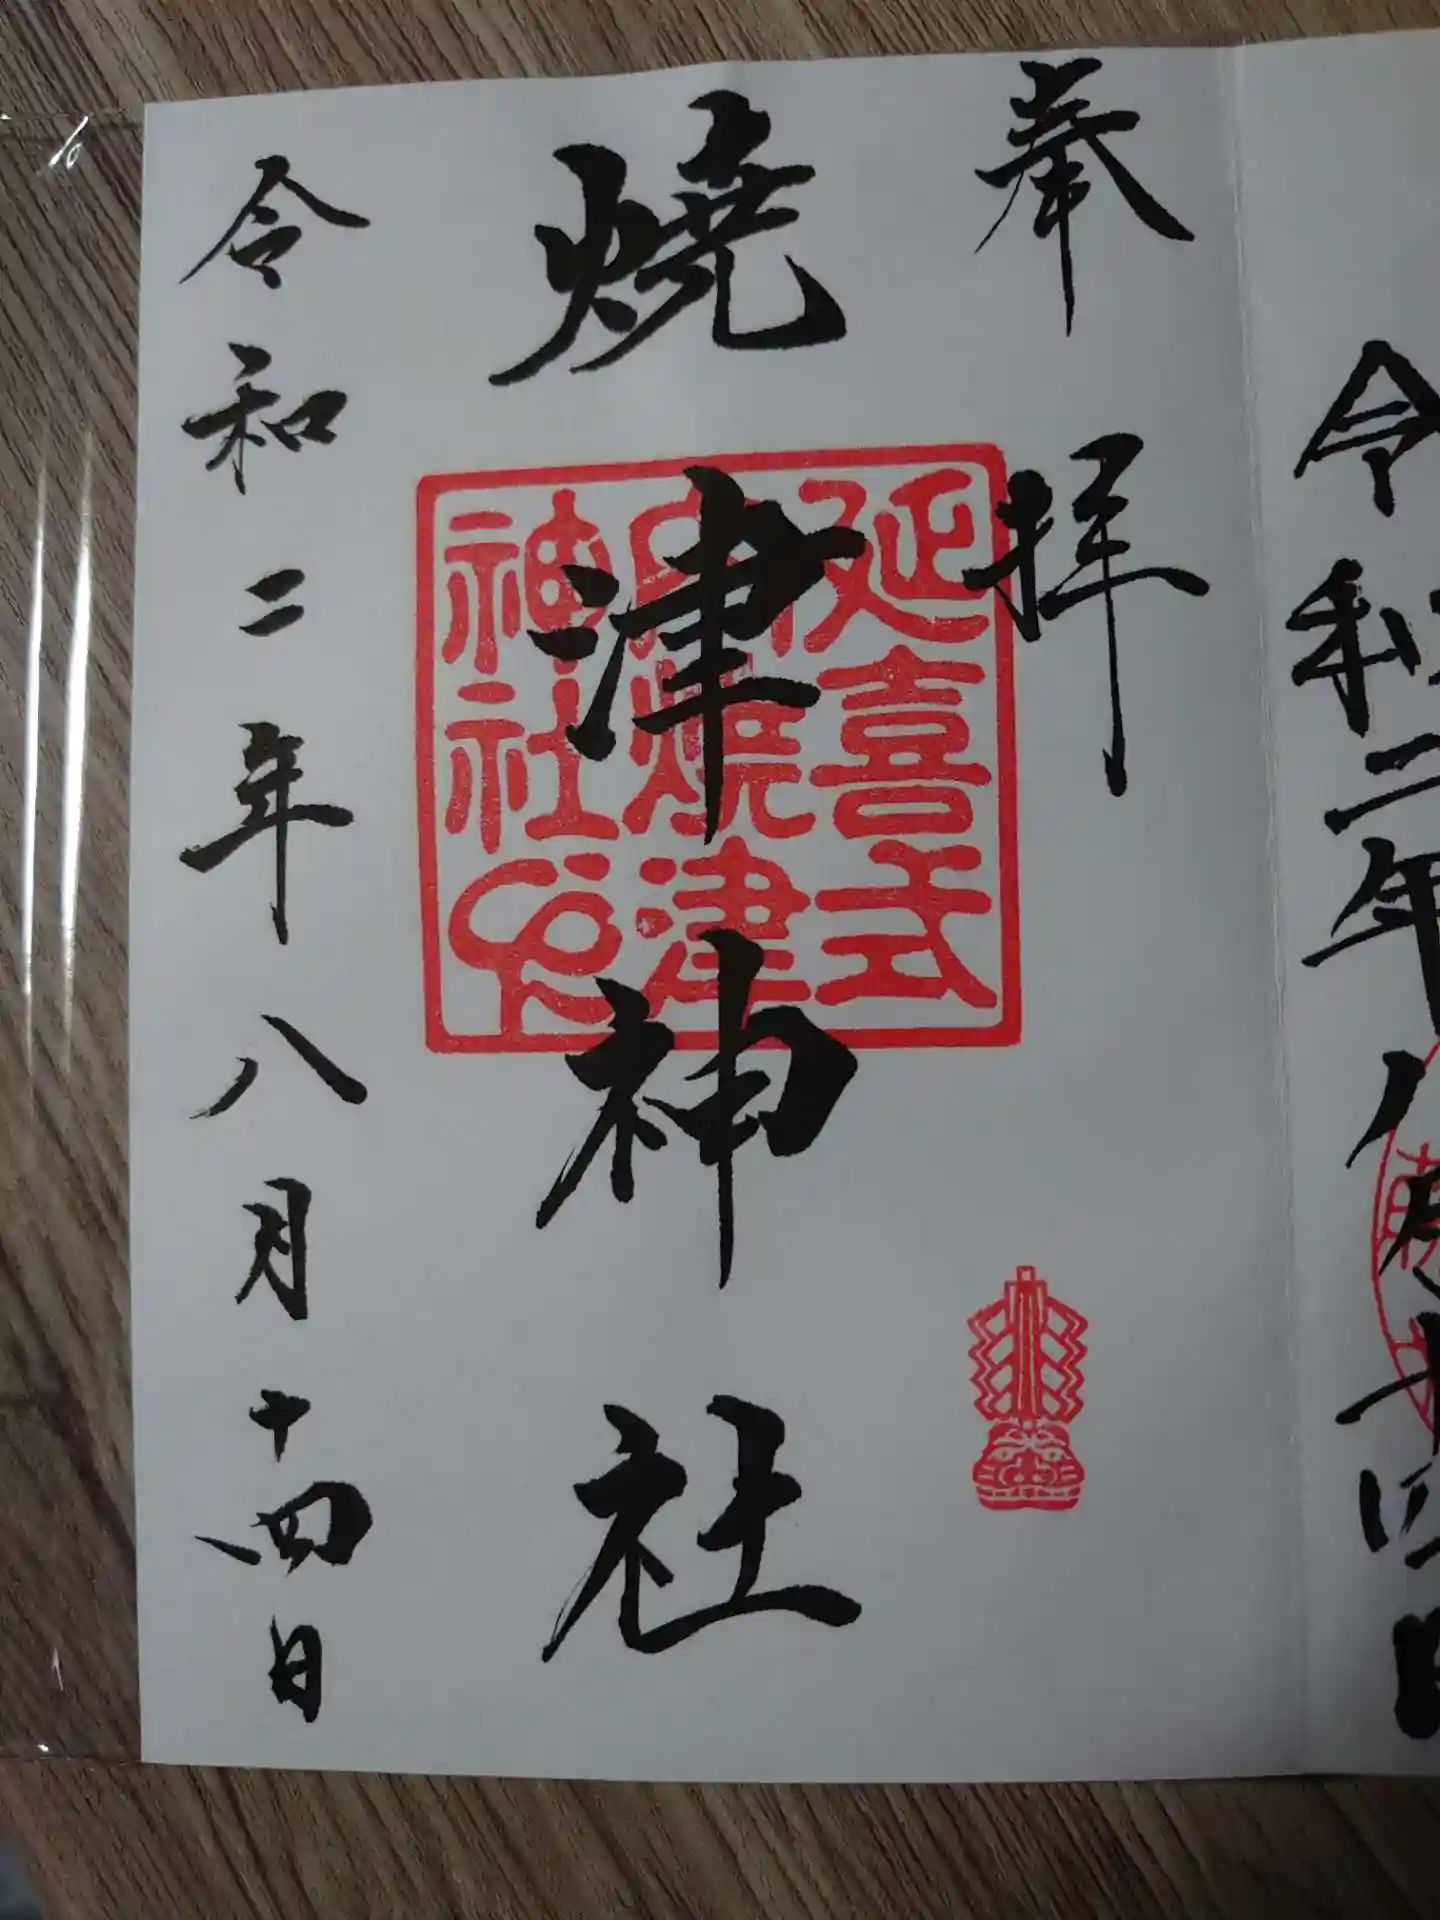 令和二年八月十四日
奉拝
焼津神社
延喜式
内焼津
神社印
令和二年八月十四日